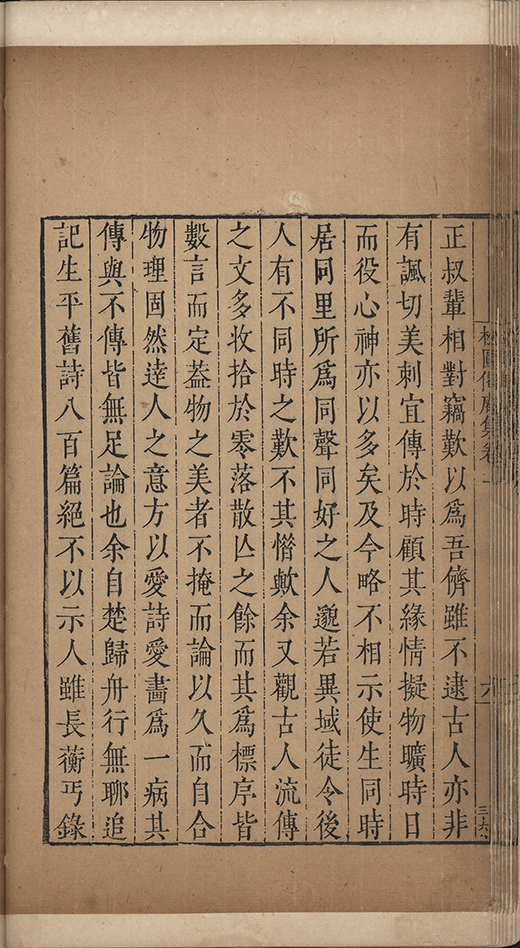 正叔輩相對竊歎以爲吾儕雖不逮古人亦非
有諷切美刺宜傳於時顧其緣情擬物曠時日
而役心神亦以多矣及今略不相示使生同時
居同里所爲同聲同好之人邈若異域徒令後
人有不同時之歎不其憯歟余又觀古人流傳
之文多收拾於零落散亾之餘而其爲標序皆
數言而定葢物之美者不掩而論以久而自合
物理固然達人之意方以愛詩愛畫爲一病其
傳與不傳皆無足論也余自楚歸舟行無聊追
記生平舊詩八百篇絕不以示人雖長蘅丐錄